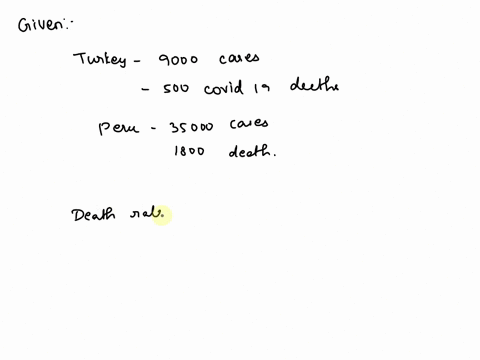 Given:-
Turkey - 9000 cases
- 500 covid 19 deeths
Peru - 35000 cases
1800 death.
Death rate